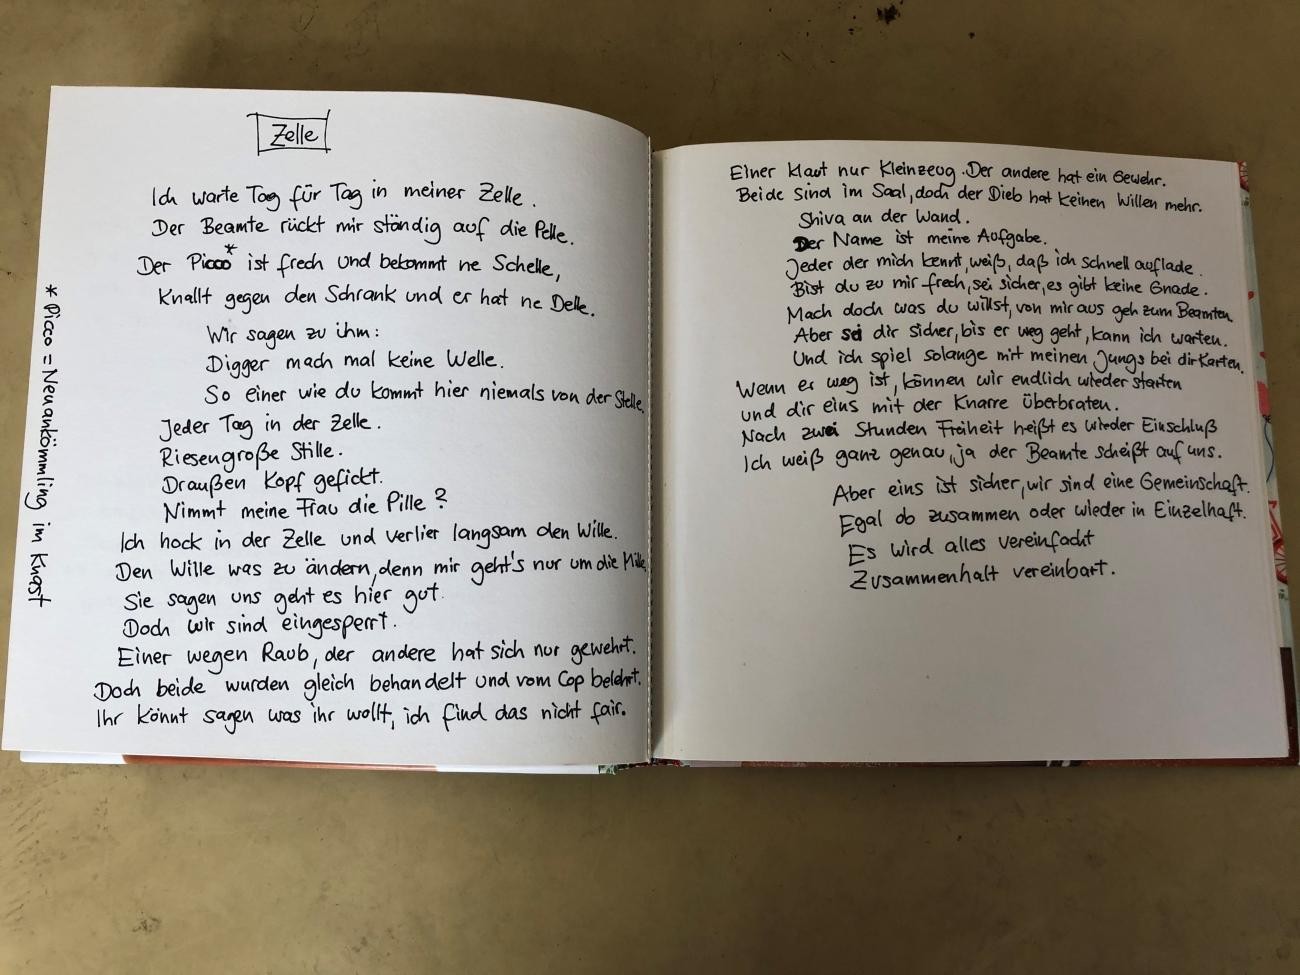 Zelle
Ich warte Tag für Tag in meiner Zelle.
Der Beamte rückt mir ständig auf die Pelle.
Der Picco* ist frech und bekommt ne Schelle,
Knallt gegen den Schrank und er hat ne Delle.
Wir sagen zu ihm:
Digger mach mal keine Welle.
So einer wie du kommt hier niemals von der Stelle.
Jeder Tag in der Zelle.
Riesengroße Stille.
Draußen Kopf gefickt.
Nimmt meine Frau die Pille?
Ich hock in der Zelle und verlier langsam den Wille.
Den Wille was zu ändern, denn mir geht's nur um die Mille.
Sie sagen uns geht es hier gut.
Doch wir sind eingesperrt.
Einer wegen Raub, der andere hat sich nur gewehrt.
Doch beide wurden gleich behandelt und vom Cop belehrt.
Ihr könnt sagen was ihr wollt, ich find das nicht fair.
* Picco = Neuankömmling im Knast
Einer klaut nur Kleinzeug. Der andere hat ein Gewehr.
Beide sind im Saal, doch der Dieb hat keinen Willen mehr.
Shiva an der Wand.
Der Name ist meine Aufgabe.
Jeder der mich kennt, weiß, daß ich schnell auflade.
Bist du zu mir frech, sei sicher, es gibt keine Gnade.
Mach doch was du willst, von mir aus geh zum Beamten.
Aber sei dir sicher, bis er weg geht, kann ich warten.
Und ich spiel solange mit meinen Jungs bei dir Karten.
Wenn er weg ist, können wir endlich wieder starten
und dir eins mit der Knarre überbraten.
Nach zwei Stunden Freiheit heißt es wieder Einschluß
Ich weiß ganz genau, ja der Beamte scheißt auf uns.
Aber eins ist sicher, wir sind eine Gemeinschaft.
Egal ob zusammen oder wieder in Einzelhaft.
Es wird alles vereinfacht
Zusammenhalt vereinbart.